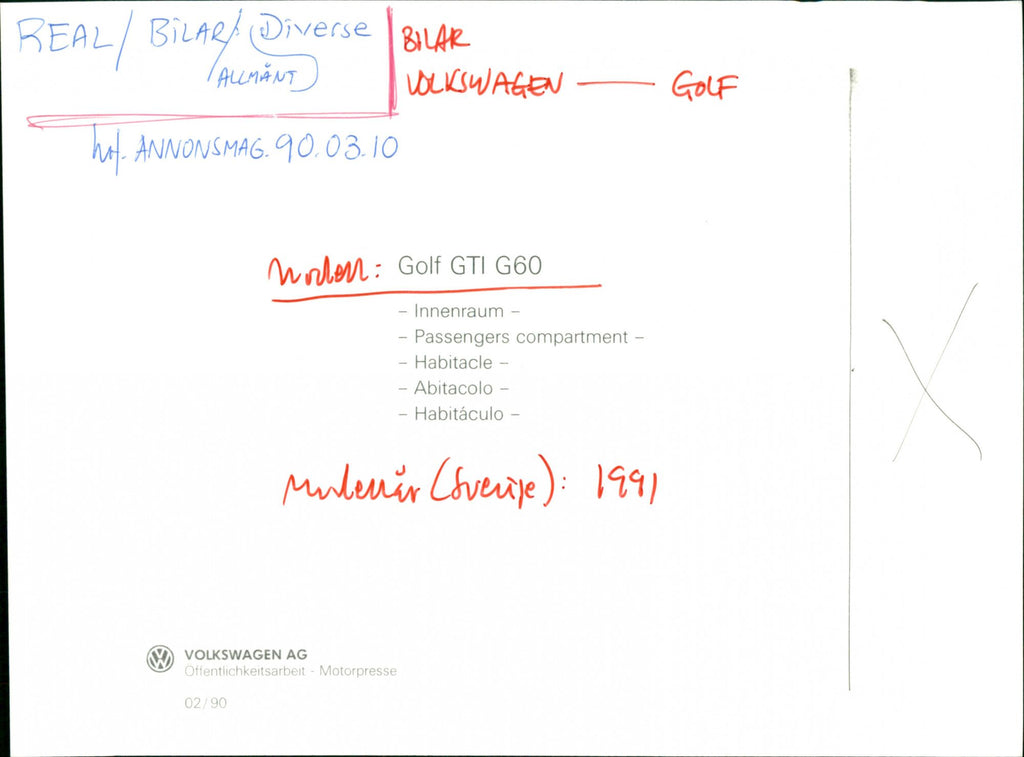 REAL / BILAR / Diverse
ALLMÄNT
BILAR
VOLKSWAGEN — GOLF
ANNONSMAG. 90.03.10
Modell: Golf GTI G60
– Innenraum –
– Passengers compartment –
– Habitacle –
– Abitacolo –
– Habitáculo –
Modellår (Sverige): 1991
VOLKSWAGEN AG
Öffentlichkeitsarbeit - Motorpresse
02/90